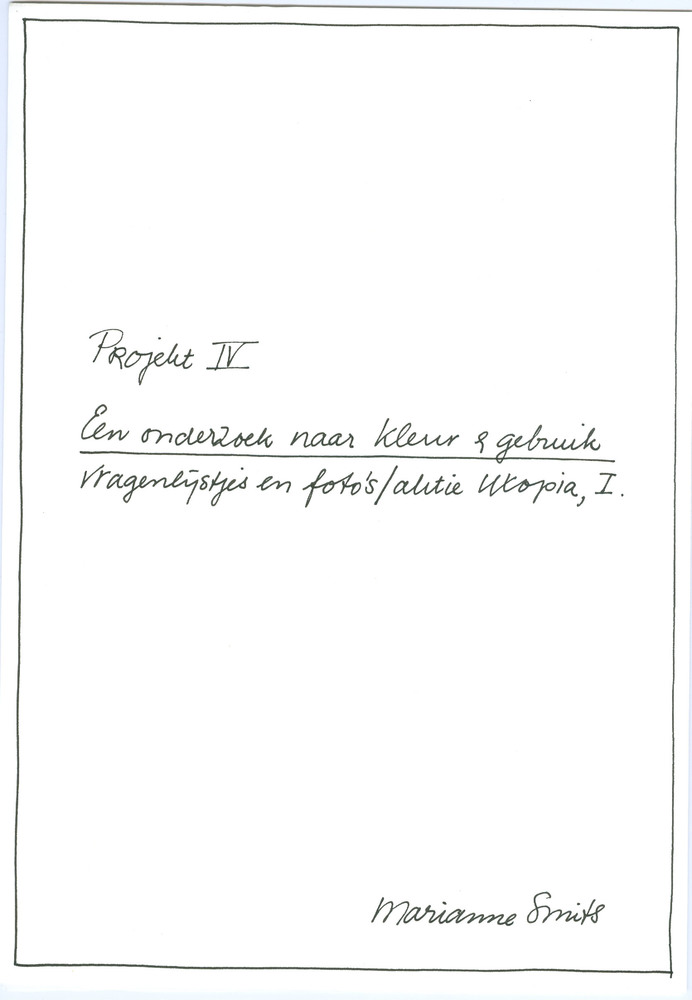 Projekt IV
Een onderzoek naar kleur & gebruik
vragenlijstjes en foto's/aktie Utopia, I.
Marianne Smits